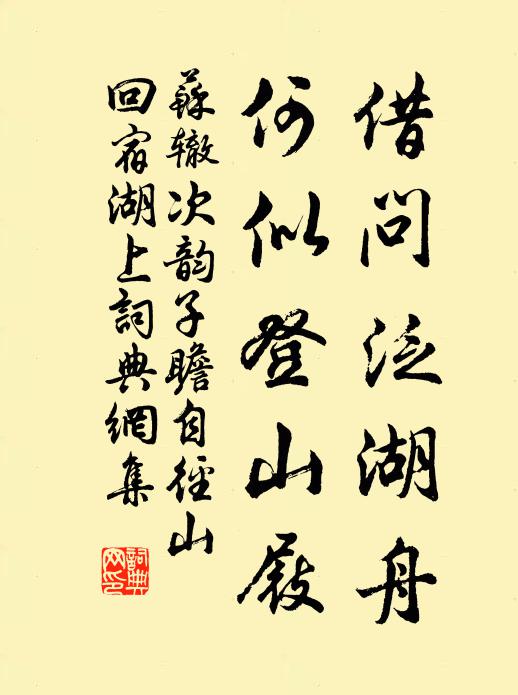 借问泛湖舟
何似登山屐
蘇辙次韵子瞻自徑山
回宿湖上詞典網集
詞典网印